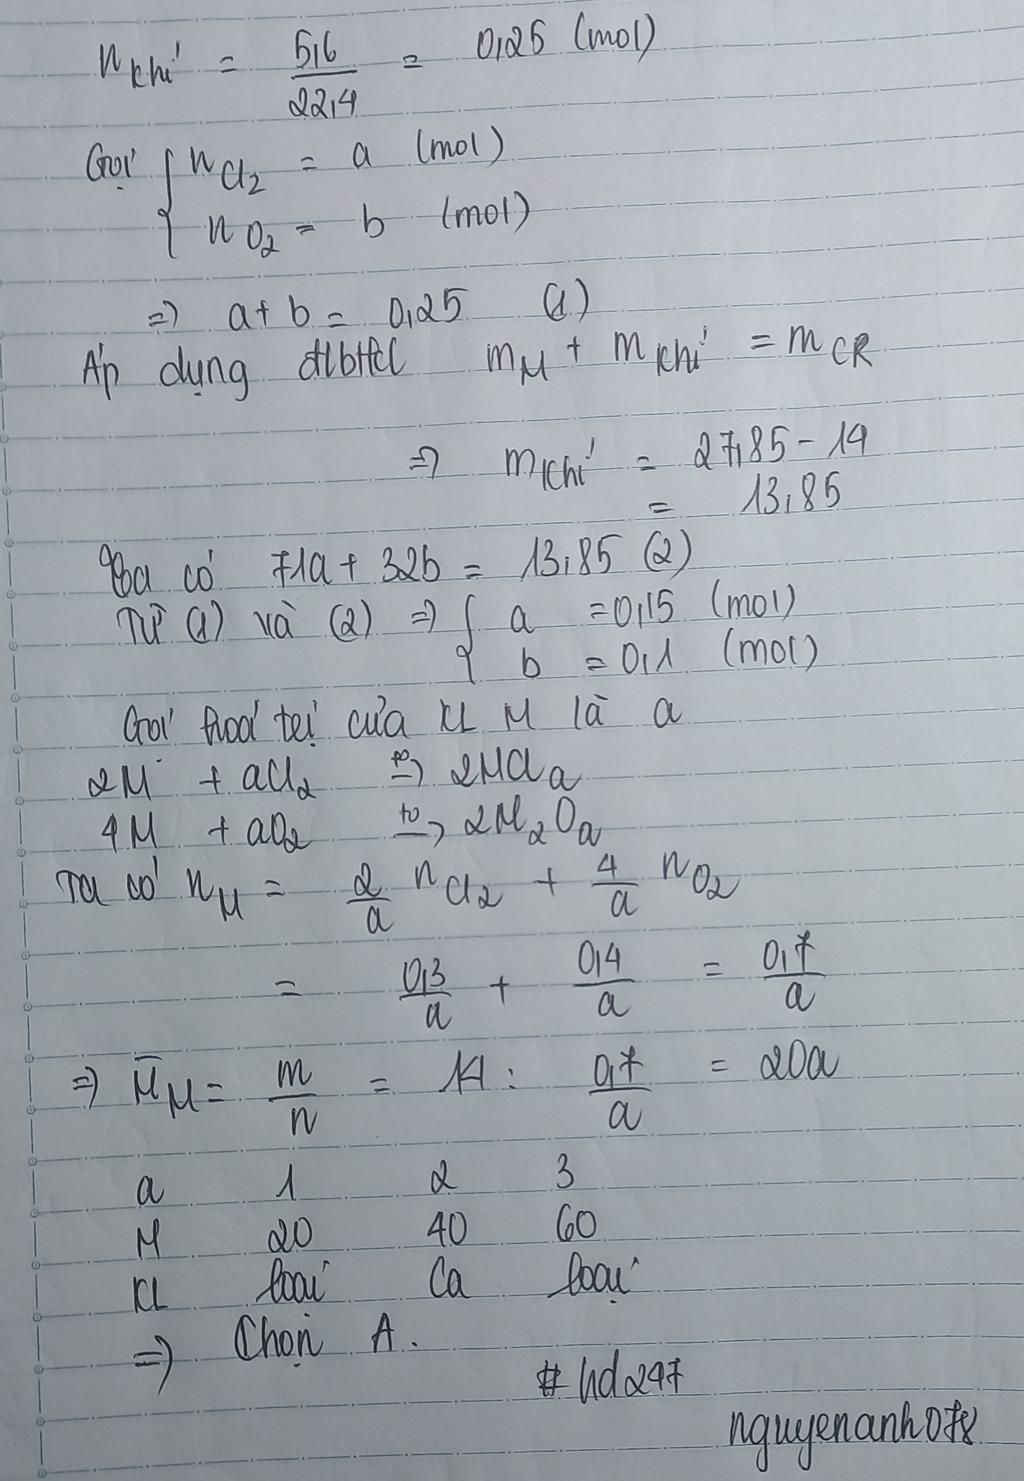 n khí = 5,6 / 22,4 = 0,25 (mol)
Gọi { n Cl2 = a (mol)
n O2 = b (mol)
=> a + b = 0,25 (1)
Áp dụng đlbtkl m M + m khí = m CR
=> m khí = 27,85 - 14
= 13,85
Ta có 71a + 32b = 13,85 (2)
Từ (1) và (2) => { a = 0,15 (mol)
b = 0,1 (mol)
Gọi hoá trị của KL M là a
2M + aCl2 t° → 2MCl a
4M + aO2 t° → 2M2Oa
Ta có n M = 2/a n Cl2 + 4/a n O2
= 0,3/a + 0,4/a = 0,7/a
=> M̄ M = m/n = 14 : 0,7/a = 20a
a 1 2 3
M 20 40 60
KL loại Ca loại
=> Chọn A.
# hd247
nguyenanh078